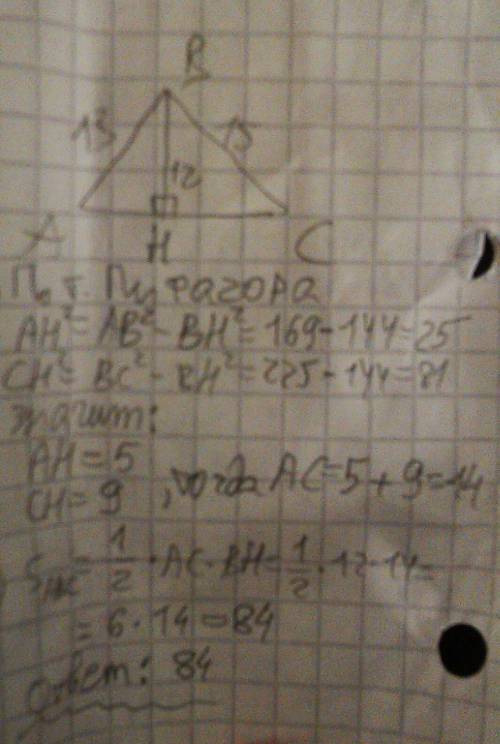 B
13
15
12
A
H
C
По т. Пифагора
AH²=AB²-BH²=169-144=25
CH²=BC²-BH²=225-144=81
значит:
AH=5
CH=9, тогда AC=5+9=14
S_ABC=1/2·AC·BH=1/2·12·14=
=6·14=84
Ответ: 84